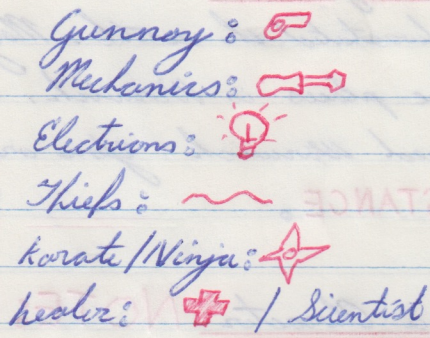 Gunnoy:
Mechanics:
Electrions:
Thiefs:
Karate/Ninja:
healer: / Scientist